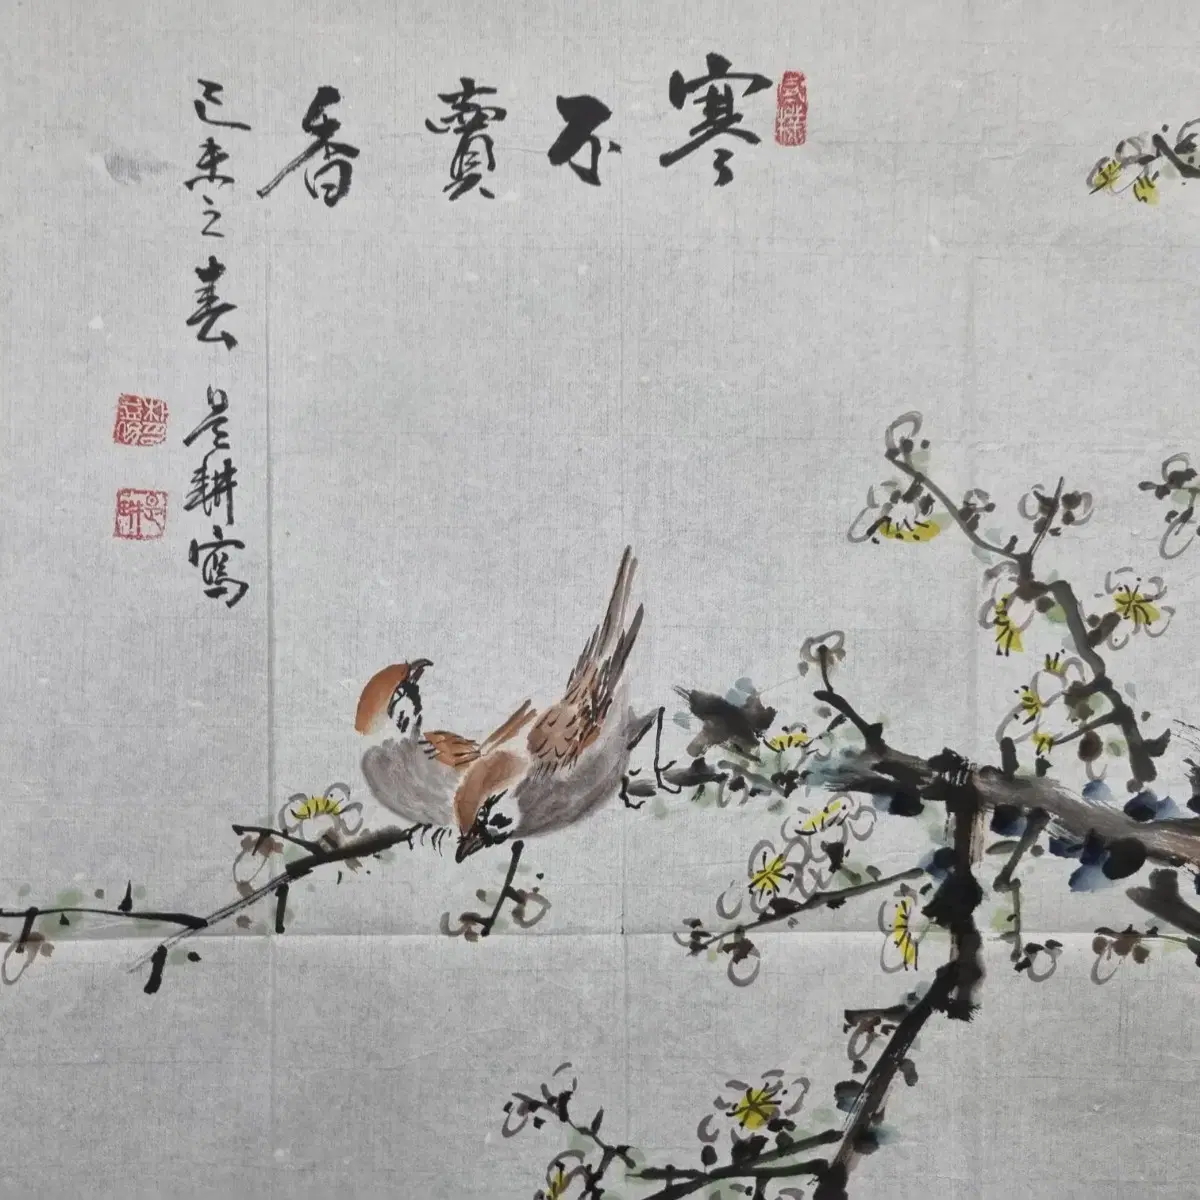 寒不賣香
己未之春 耕寫